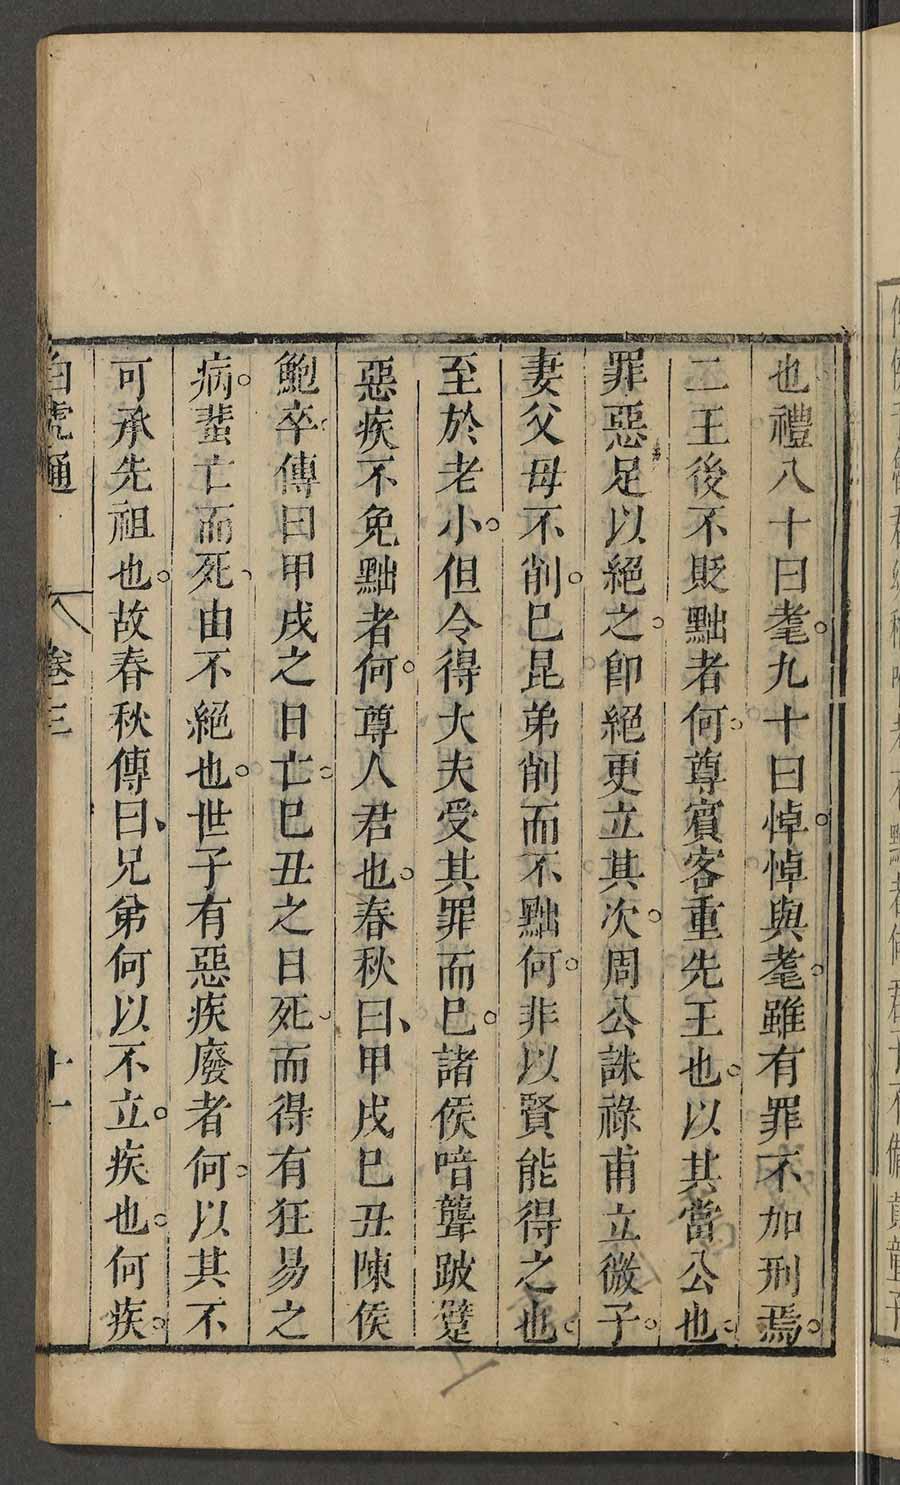 也禮八十曰耄。九十曰悼。悼與耄。雖有罪不加刑焉。
二王後不貶黜者何。尊賓客重先王也。以其當公也。
罪惡足以絕之。即絕更立其次。周公誅祿甫立微子。
妻父母不削。巳昆弟削而不黜何。非以賢能得之也。
至於老小。但令得大夫受其罪而巳。諸侯喑聾跛躄
惡疾不免黜者何。尊人君也。春秋曰、甲戌巳丑陳侯
鮑卒。傳曰甲戌之日亡。巳丑之日死。而得有狂易之
病。蜚亡而死、由不絕也。世子有惡疾廢者何。以其不
可承先祖也。故春秋傳曰、兄弟何以不立。疾也。何疾。
白虎通 卷三 十一